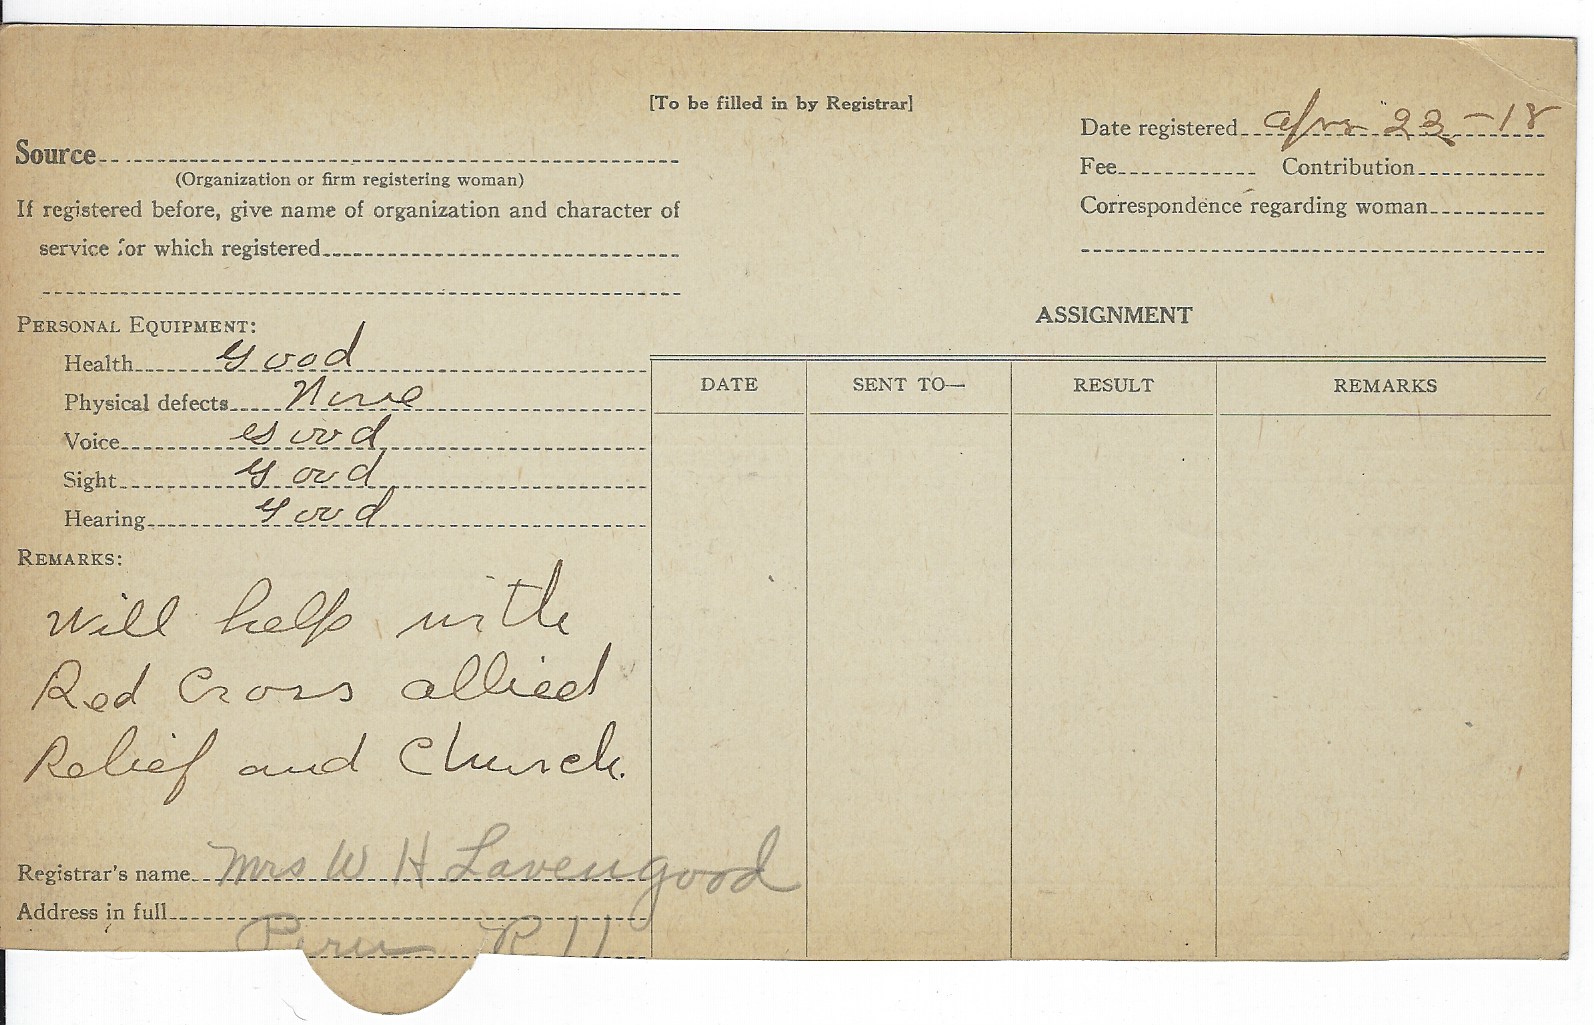 [To be filled in by Registrar]
Date registered Apr 23-18
Source
(Organization or firm registering woman)
Fee Contribution
If registered before, give name of organization and character of
service for which registered
Correspondence regarding woman
ASSIGNMENT
PERSONAL EQUIPMENT:
Health Good
Physical defects None
Voice Good
Sight Good
Hearing Good
DATE SENT TO— RESULT REMARKS
REMARKS:
Will help with
Red Cross allied
Relief and Church.
Registrar's name Mrs W H Lavengood
Address in full
Peru R 11